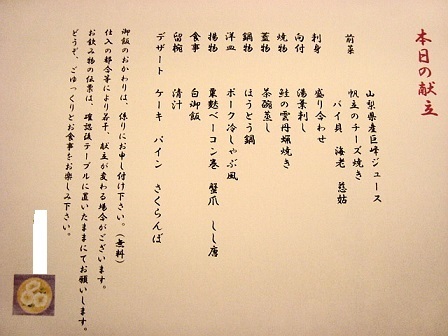 本日の献立
山梨県産巨峰ジュース
前菜 帆立のチーズ焼き
バイ貝 海老 慈姑
刺身 盛り合わせ
向付 湯葉刺し
焼物 鮭の雲丹蝋焼き
蓋物 茶碗蒸し
鍋物 ほうとう鍋
洋皿 ポーク冷しゃぶ風
揚物 粟麩ベーコン巻 蟹爪 しし唐
食事 白御飯
留椀 清汁
デザート ケーキ パイン さくらんぼ
御飯のおかわりは、係りにお申し付け下さい。(無料)
仕入の都合等により若干、献立が変わる場合がございます。
お飲み物の伝票は、確認後テーブルに置いたままにてお願いします。
どうぞ、ごゆっくりとお食事をお楽しみ下さい。